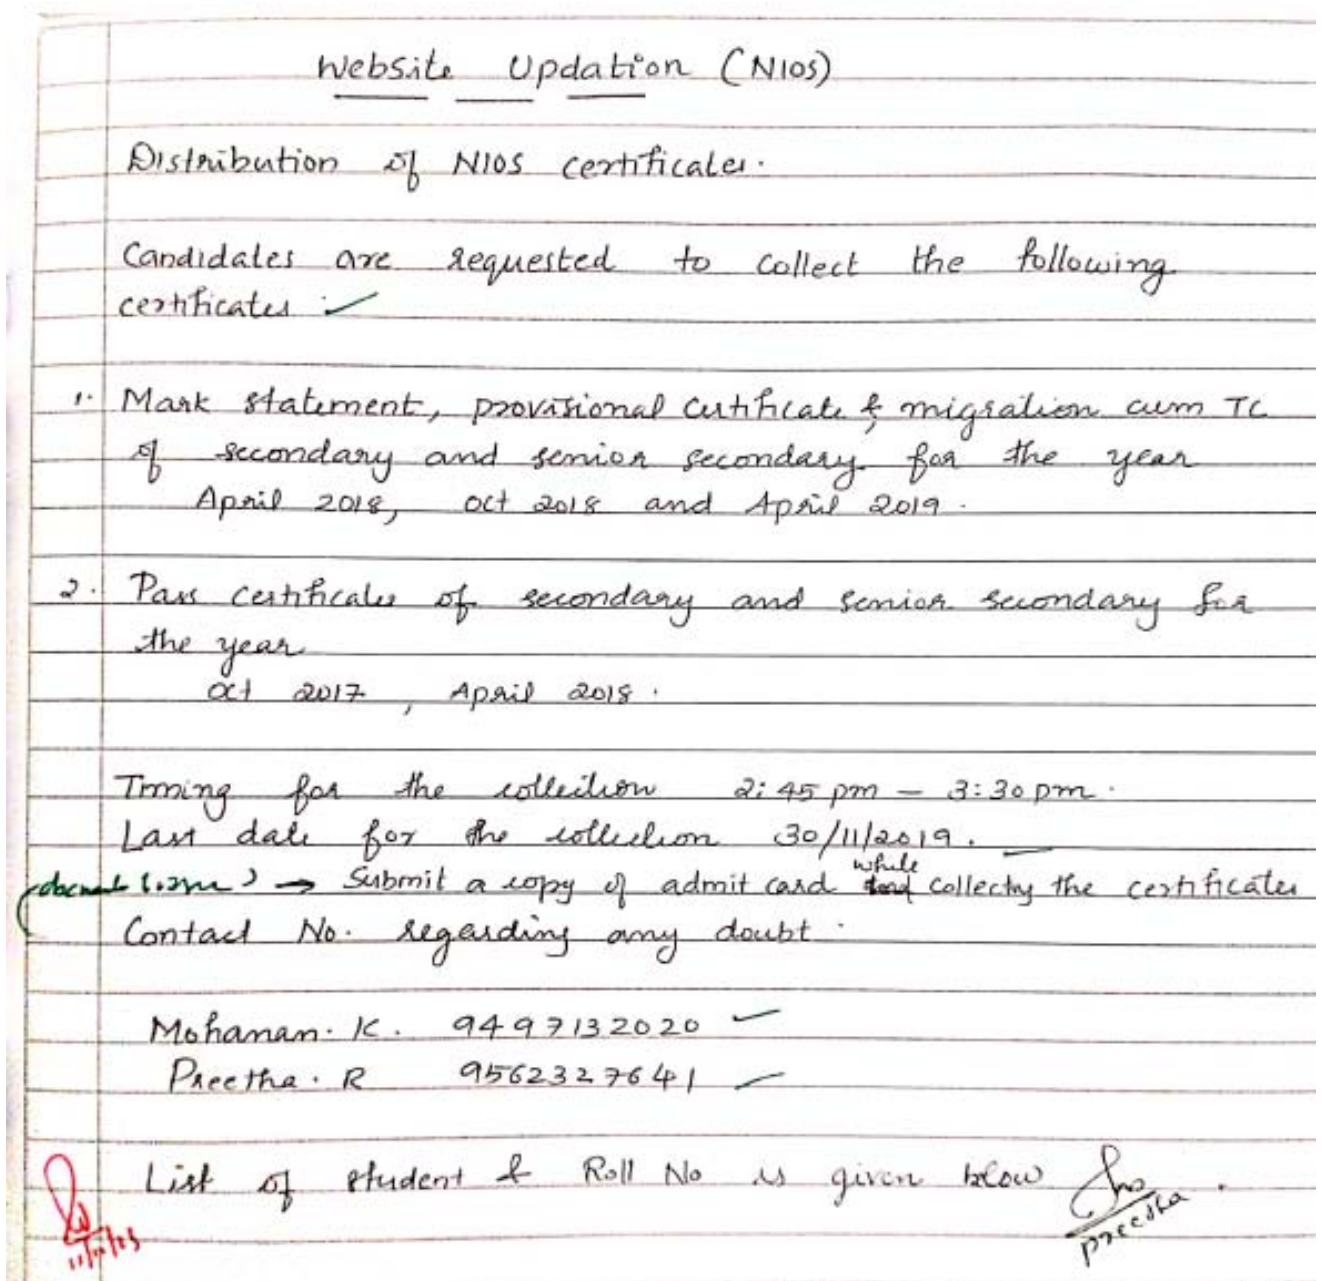 Website Updation (NIOS)
Distribution of NIOS certificates.
Candidates are requested to collect the following
certificates :
1. Mark statement, provisional certificate & migration cum TC
of secondary and senior secondary for the year
April 2018, Oct 2018 and April 2019.
2. Pass certificates of secondary and senior secondary for
the year
Oct 2017, April 2018.
Timing for the collection 2:45 pm – 3:30 pm.
Last date for the collection 30/11/2019.
→ Submit a copy of admit card while collectng the certificates
Contact No. regarding any doubt.
Mohanan. K. 9497132020
Preetha. R 9562327641
List of student & Roll No is given below
preetha